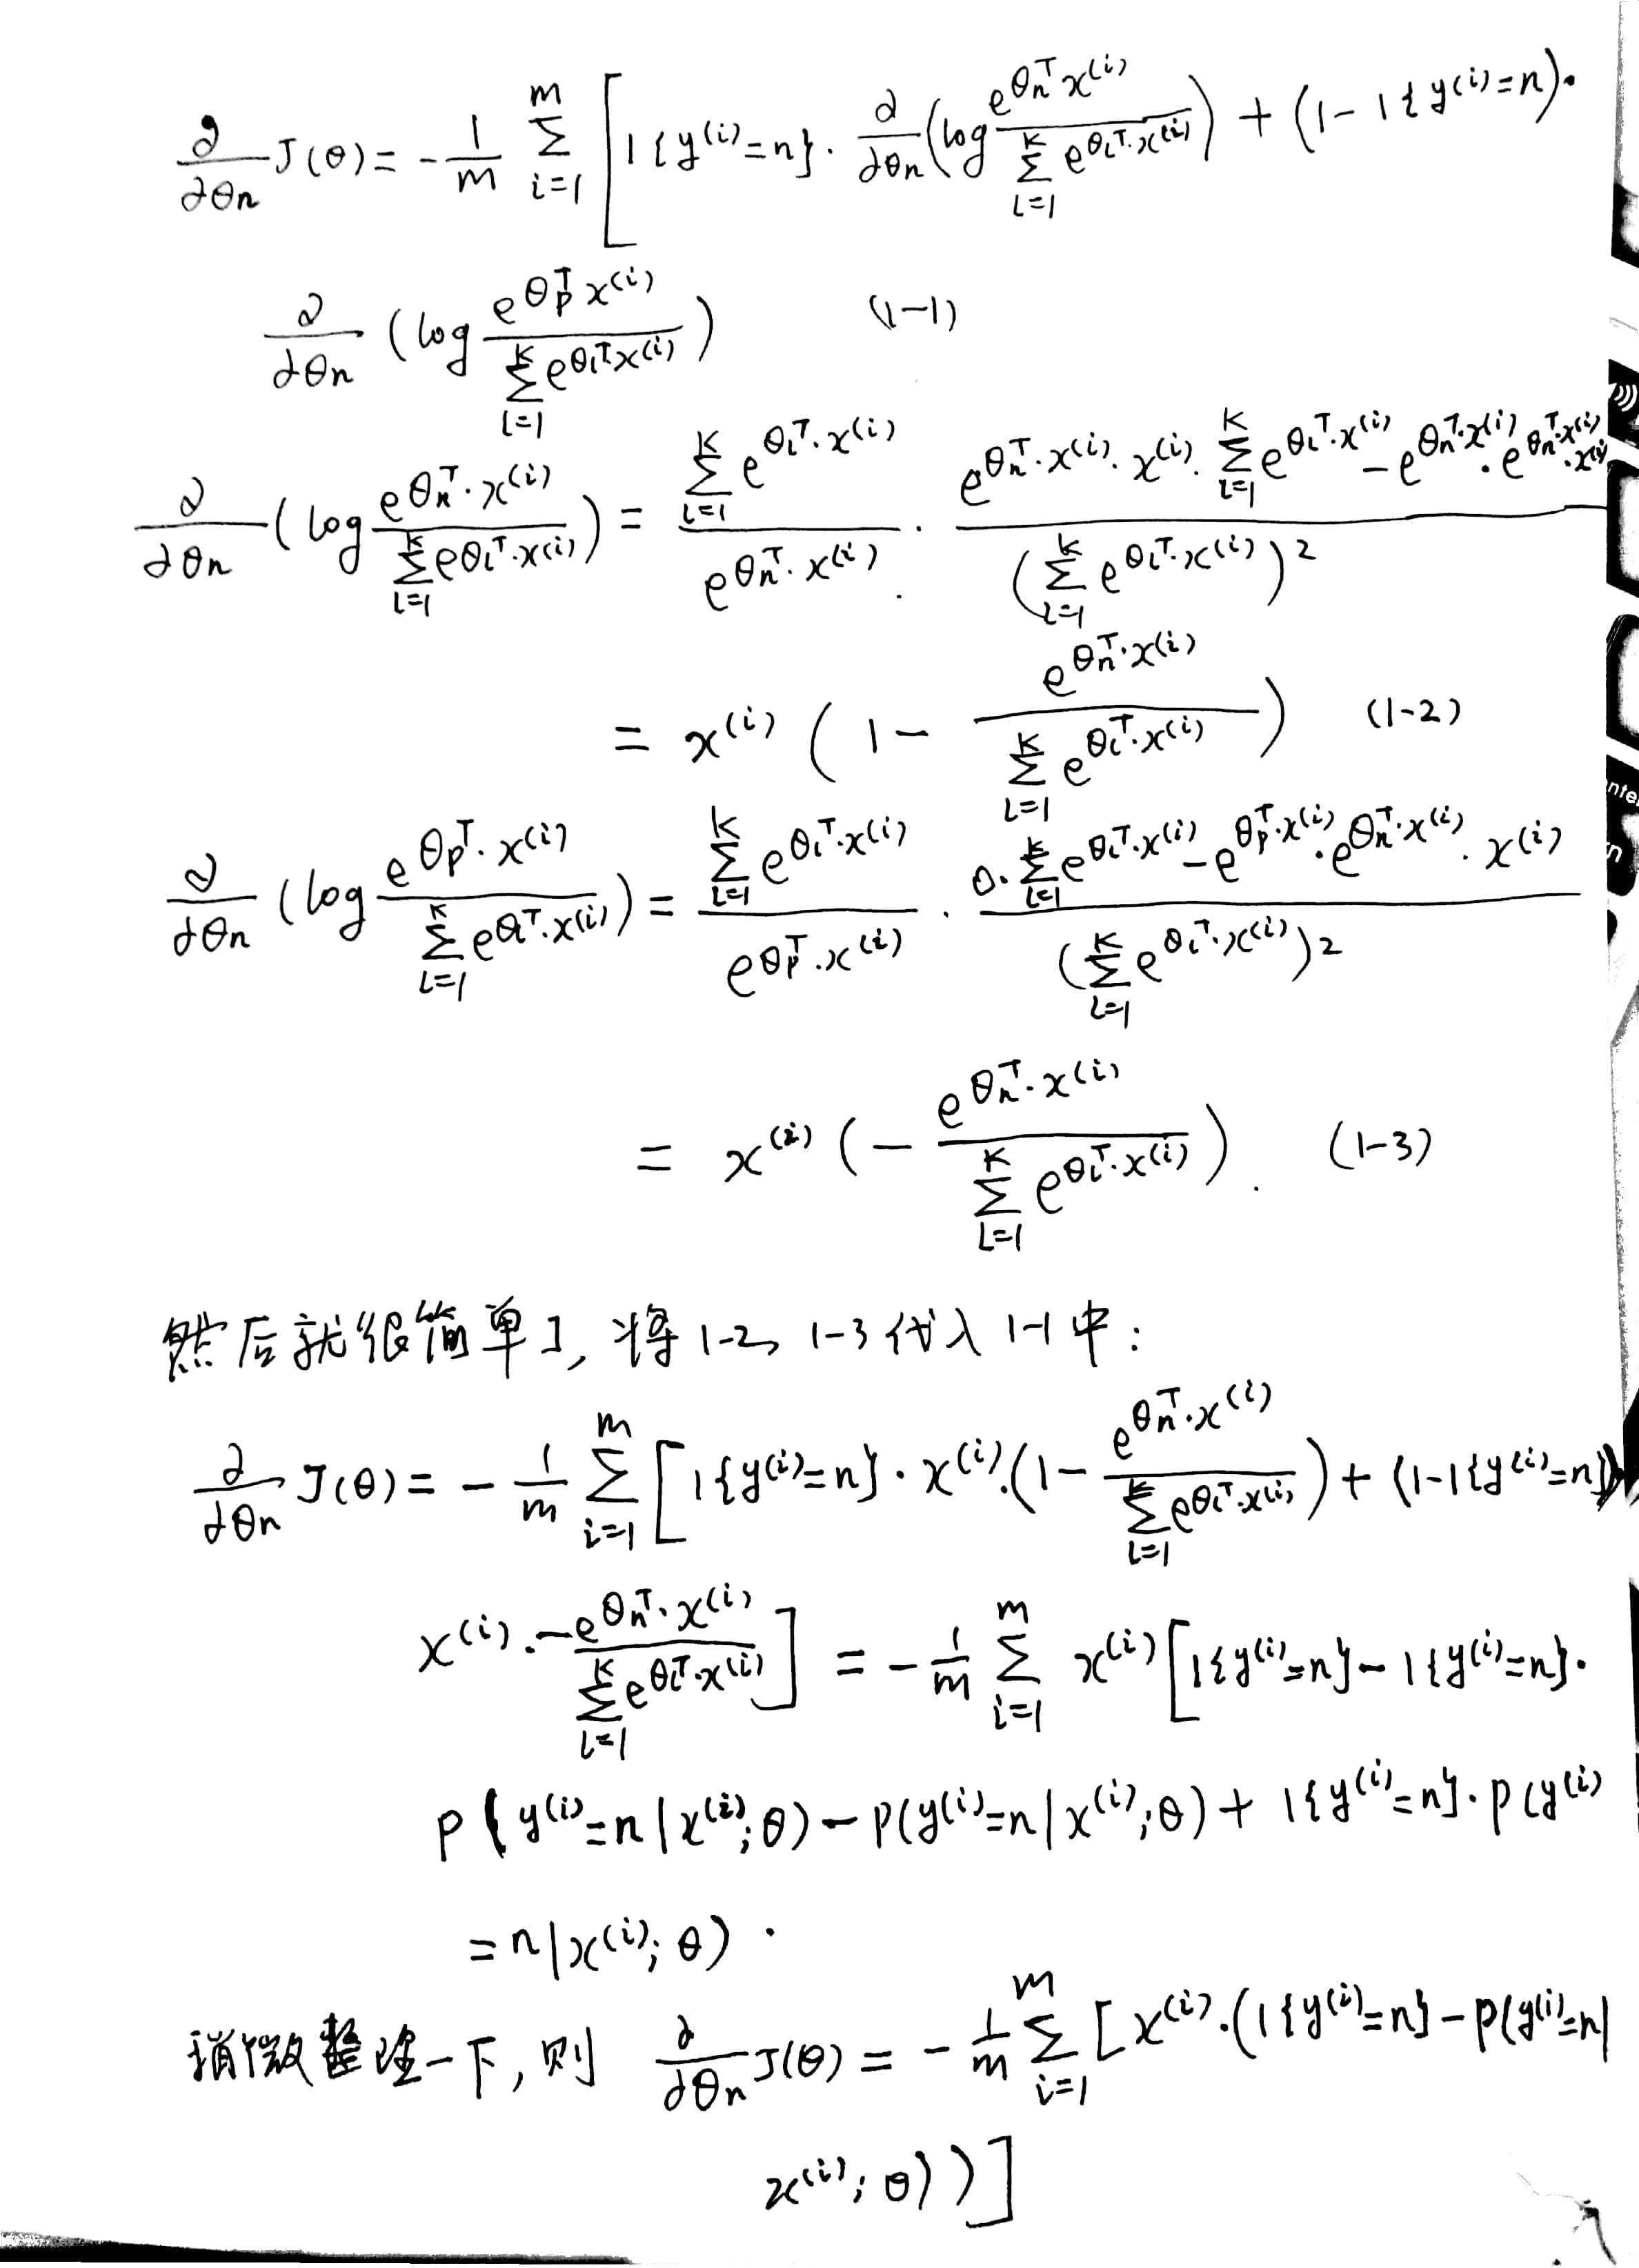 ∂/∂θn J(θ) = - 1/m Σ_{i=1}^{m} [ 1{y^(i)=n} · ∂/∂θn (log e^{θn^T x^(i)} / Σ_{l=1}^{k} e^{θl^T·x^(i)}) + (1-1{y^(i)=n)·
∂/∂θn (log e^{θp^T x^(i)} / Σ_{l=1}^{k} e^{θl^T x^(i)}) (1-1)
∂/∂θn (log e^{θn^T·x^(i)} / Σ_{l=1}^{k} e^{θl^T·x^(i)}) = Σ_{l=1}^{k} e^{θl^T·x^(i)} / e^{θn^T·x^(i)} · (e^{θn^T·x^(i)}·x^(i)·Σ_{l=1}^{k} e^{θl^T·x^(i)} - e^{θn^T·x^(i)}·e^{θn^T·x^(i)}·x^(i)) / (Σ_{l=1}^{k} e^{θl^T·x^(i)})^2
= x^(i) (1 - e^{θn^T·x^(i)} / Σ_{l=1}^{k} e^{θl^T·x^(i)}) (1-2)
∂/∂θn (log e^{θp^T·x^(i)} / Σ_{l=1}^{k} e^{θl^T·x^(i)}) = Σ_{l=1}^{k} e^{θl^T·x^(i)} / e^{θp^T·x^(i)} · (0·Σ_{l=1}^{k} e^{θl^T·x^(i)} - e^{θp^T·x^(i)}·e^{θn^T·x^(i)}·x^(i)) / (Σ_{l=1}^{k} e^{θl^T·x^(i)})^2
= x^(i) (- e^{θn^T·x^(i)} / Σ_{l=1}^{k} e^{θl^T·x^(i)}). (1-3)
然后就很简单了, 将1-2, 1-3代入1-1中:
∂/∂θn J(θ) = - 1/m Σ_{i=1}^{m} [ 1{y^(i)=n} · x^(i)·(1 - e^{θn^T·x^(i)} / Σ_{l=1}^{k} e^{θl^T·x^(i)}) + (1-1{y^(i)=n})
x^(i) · -e^{θn^T·x^(i)} / Σ_{l=1}^{k} e^{θl^T·x^(i)} ] = - 1/m Σ_{i=1}^{m} x^(i) [ 1{y^(i)=n} - 1{y^(i)=n}·
P(y^(i)=n|x^(i);θ) - P(y^(i)=n|x^(i);θ) + 1{y^(i)=n}·P(y^(i)
=n|x^(i);θ) ·
稍微整理一下, 则 ∂/∂θn J(θ) = - 1/m Σ_{i=1}^{m} [ x^(i)·(1{y^(i)=n} - P(y^(i)=n|
x^(i);θ))]